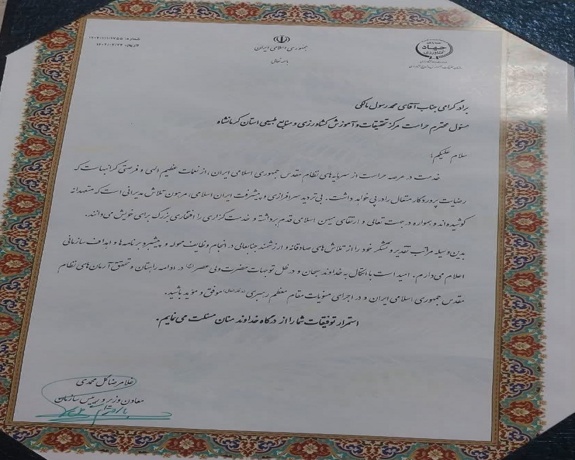 جمهوری اسلامی ایران
جهاد
برادر گرامی جناب آقای محمد رسول ملکی
مسئول محترم حراست مرکز تحقیقات و آموزش کشاورزی و منابع طبیعی استان کرمانشاه
سلام علیکم؛
خدمت در عرصه حراست از سرمایه‌های نظام مقدس جمهوری اسلامی ایران، از نعمات عظیم الهی و فرصتی گرانبهاست که
رضایت پروردگار متعال را در پی خواهد داشت. بی‌تردید سرافرازی و پیشرفت ایران اسلامی، مرهون تلاش مدیرانی است که متعهدانه
کوشیده‌اند و همواره در جهت تعالی و ارتقای میهن اسلامی قدم برداشته و خدمت‌گزاری را افتخاری بزرگ برای خویش می‌دانند.
بدین‌وسیله مراتب تقدیر و تشکر خود را از تلاش‌های صادقانه و ارزشمند جنابعالی در انجام وظایف محوله و پیشبرد برنامه‌ها و اهداف سازمانی
اعلام می‌دارم. امید است با اتکال به خداوند سبحان و در ظل توجهات حضرت ولی عصر (عج) در ادامه راهتان و تحقق آرمان‌های نظام
مقدس جمهوری اسلامی ایران و در اجرای منویات مقام معظم رهبری موفق و مؤید باشید.
استمرار توفیقات شما را از درگاه خداوند منان مسئلت می‌نمایم.
غلامرضا گل محمدی
معاون وزیر و رییس سازمان